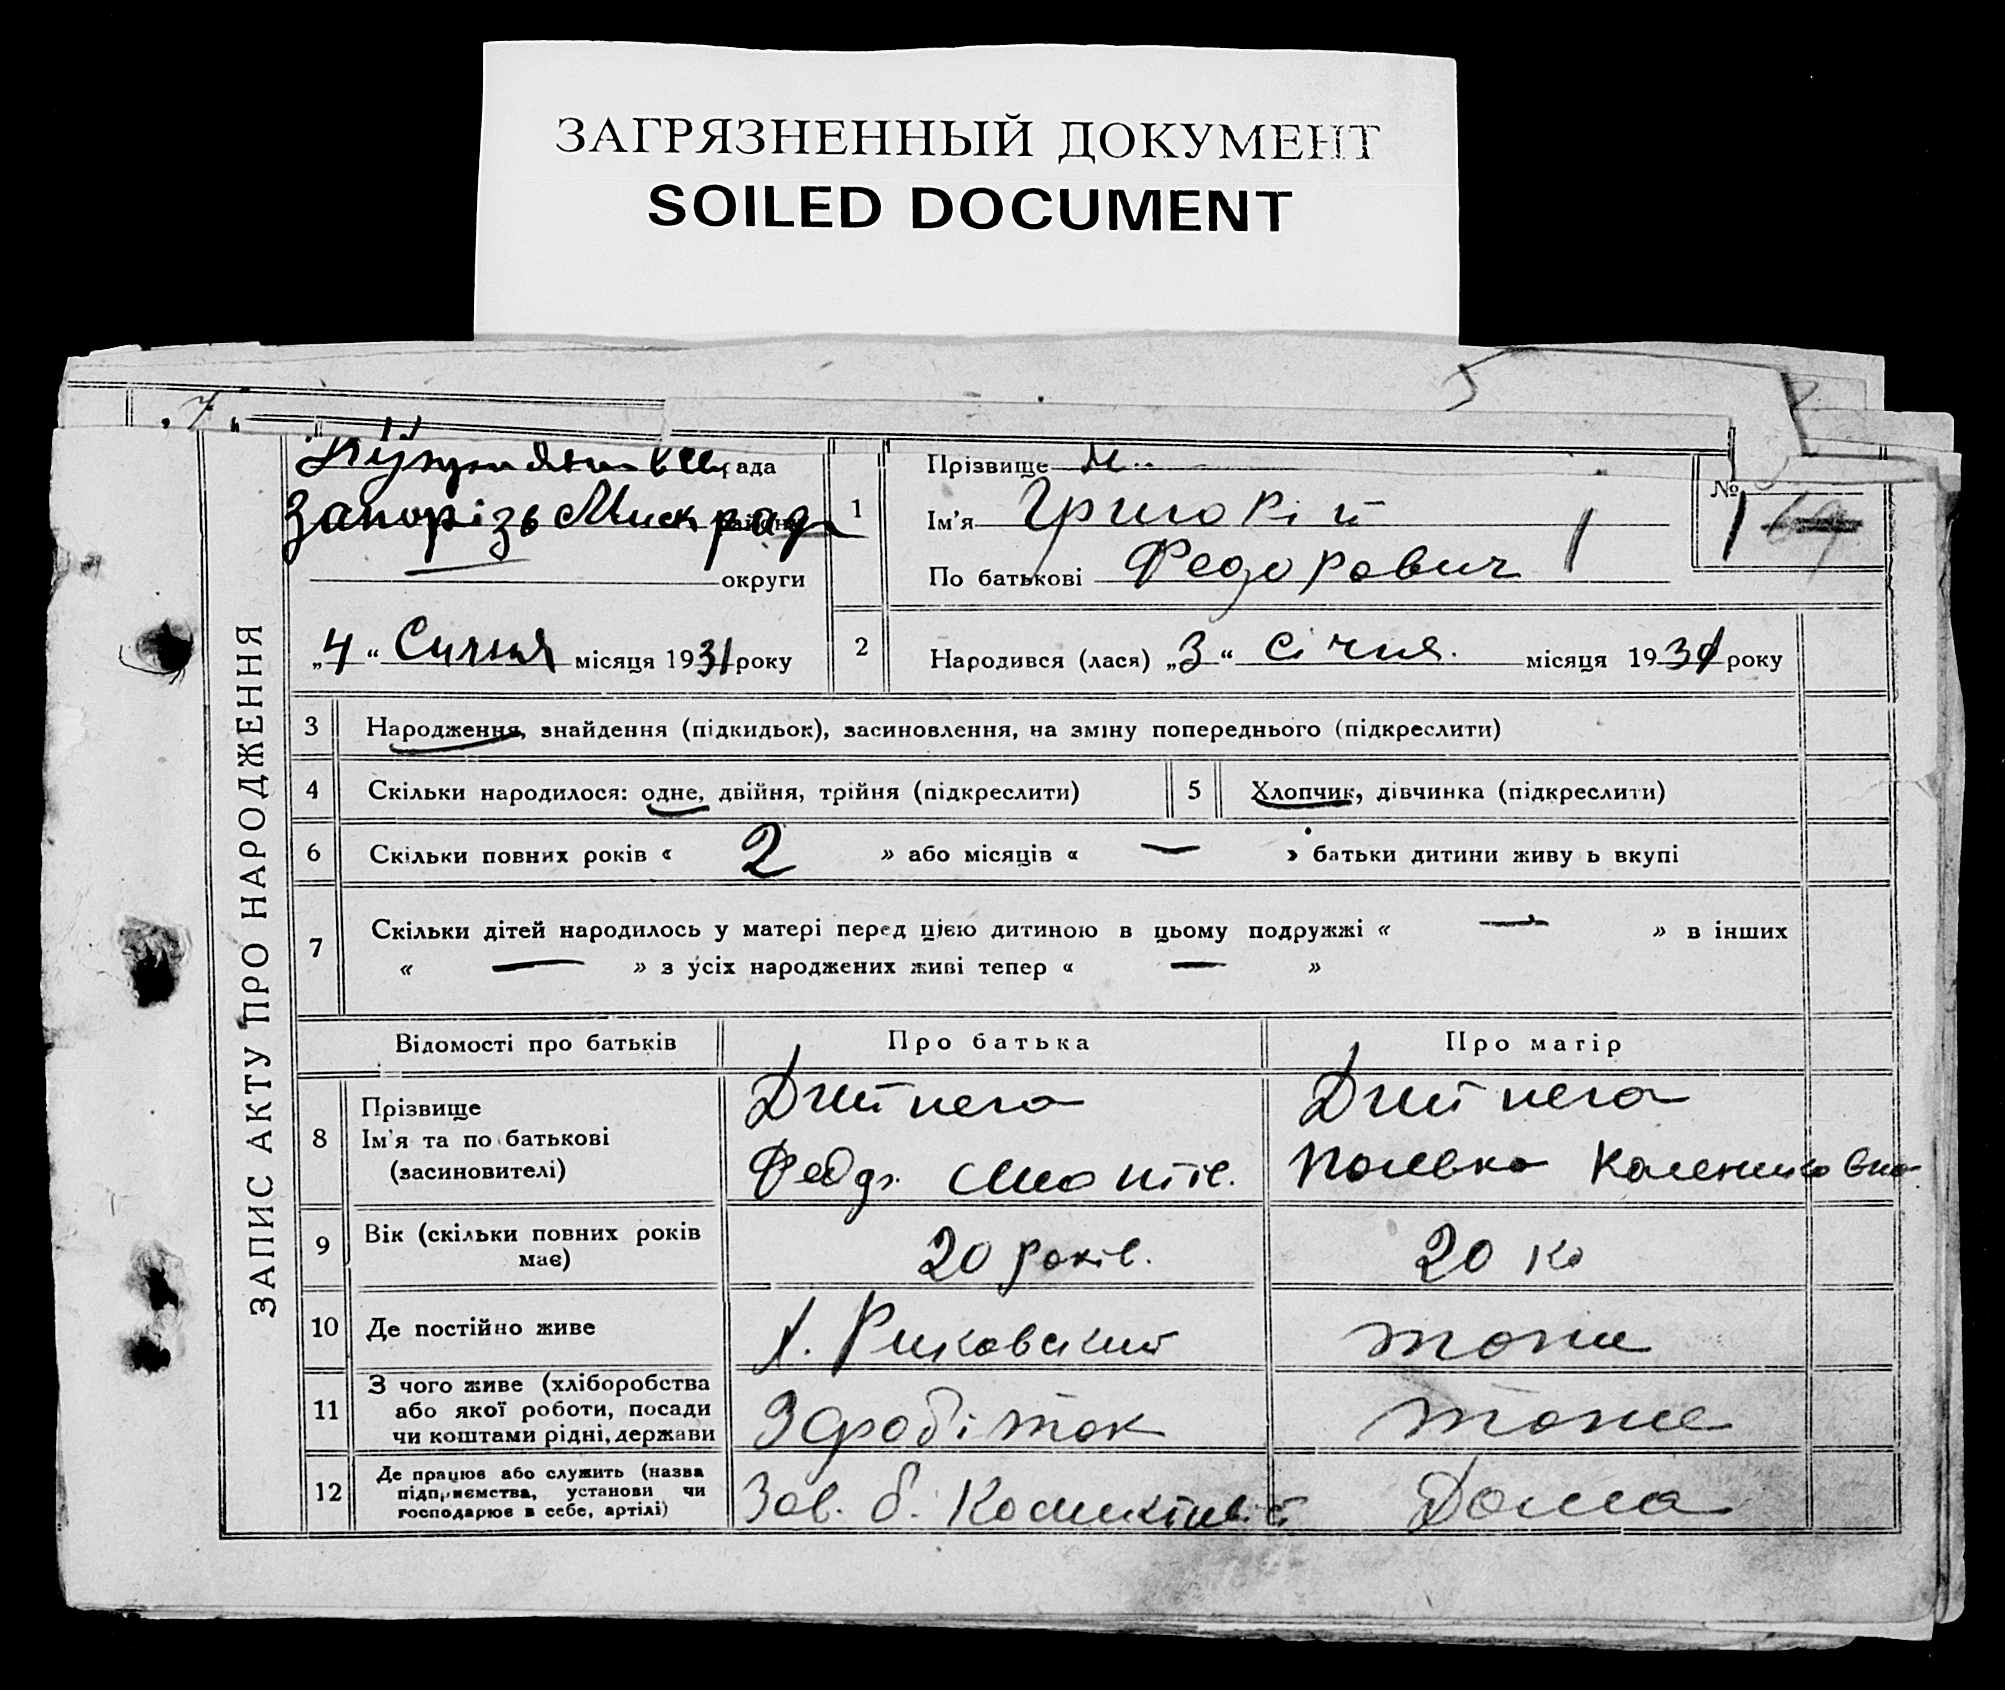 ЗАГРЯЗНЕННЫЙ ДОКУМЕНТ
SOILED DOCUMENT
ЗАПИС АКТУ ПРО НАРОДЖЕННЯ
рада
Запорізь Миск рад району
округи
„4“ Сичня місяця 1931 року
1
Прізвище
Ім'я Григорій
По батькові Федорович
№ 1
2
Народився (лася) „3“ січня. місяця 1931 року
3 Народження, знайдення (підкидьок), засиновлення, на зміну попереднього (підкреслити)
4 Скільки народилося: одне, двійня, трійня (підкреслити)
5 Хлопчик, дівчинка (підкреслити)
6 Скільки повних років « 2 » або місяців « — » батьки дитини живу ь вкупі
7 Скільки дітей народилось у матері перед цією дитиною в цьому подружжі « — » в інших
« — » з усіх народжених живі тепер « — »
Відомості про батьків Про батька Про матір
8 Прізвище
Ім'я та по батькові
(засиновителі)
Федр.
9 Вік (скільки повних років
має)
20 років. 20
10 Де постійно живе
х. Риковский тоже
11 З чого живе (хліборобства
або якої роботи, посади
чи коштами рідні, держави
Заробіток тоже
12 Де працює або служить (назва
підприємства, установи чи
господарює в себе, артілі)
Зав. б. Дома